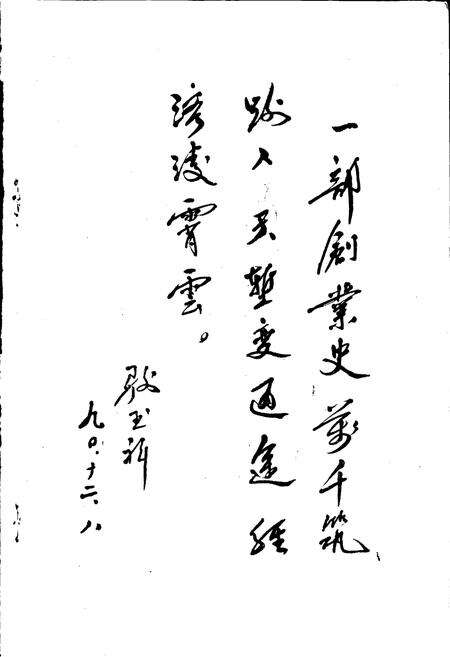 一部創業史萬千筑
路人天塹变通途經
緯凌霄雲。
玉祥
九〇.十二.八